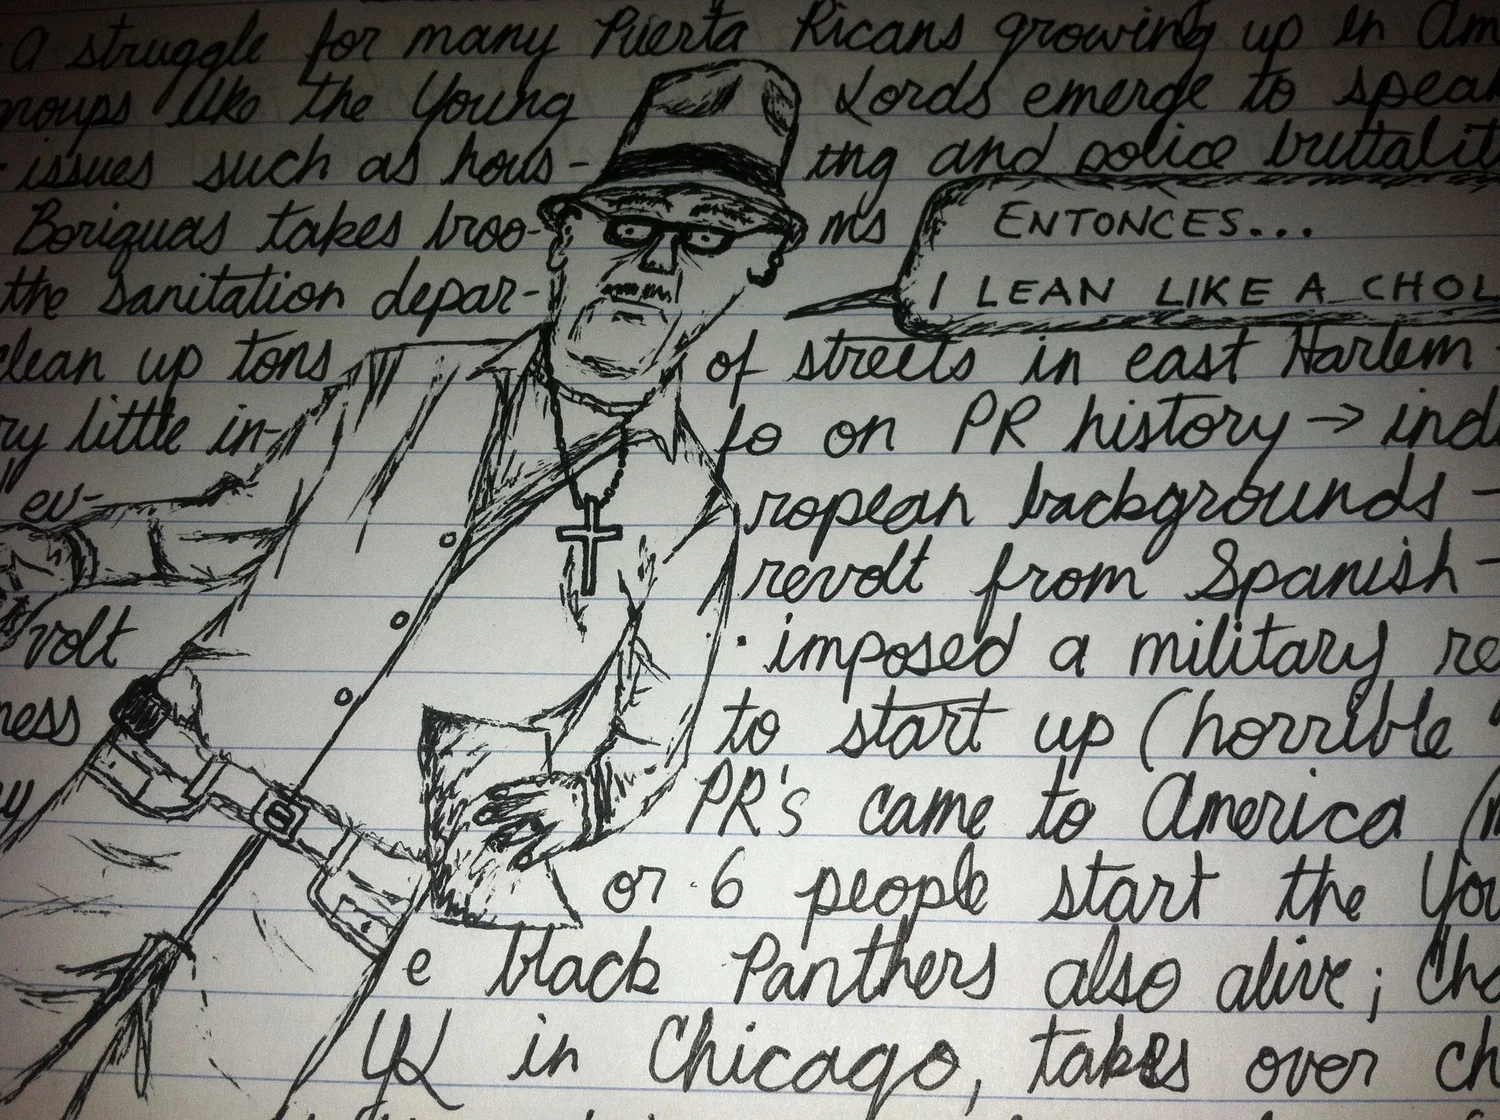 A struggle for many Puerta Ricans growing up in Am
groups like the Young Lords emerge to speak
issues such as hous- ing and police bruttalit
Boriquas takes broo- ms
ENTONCES...
the sanitation depar-
I LEAN LIKE A CHOL
clean up tons of streets in east Harlem -
ry little in- fo on PR history → indi
ev- ropean backgrounds -
revolt from Spanish -
volt · imposed a military re
ness to start up (horrible
y PR's came to America (
or 6 people start the You
e black Panthers also alive; Cha
YL in Chicago, takes over ch